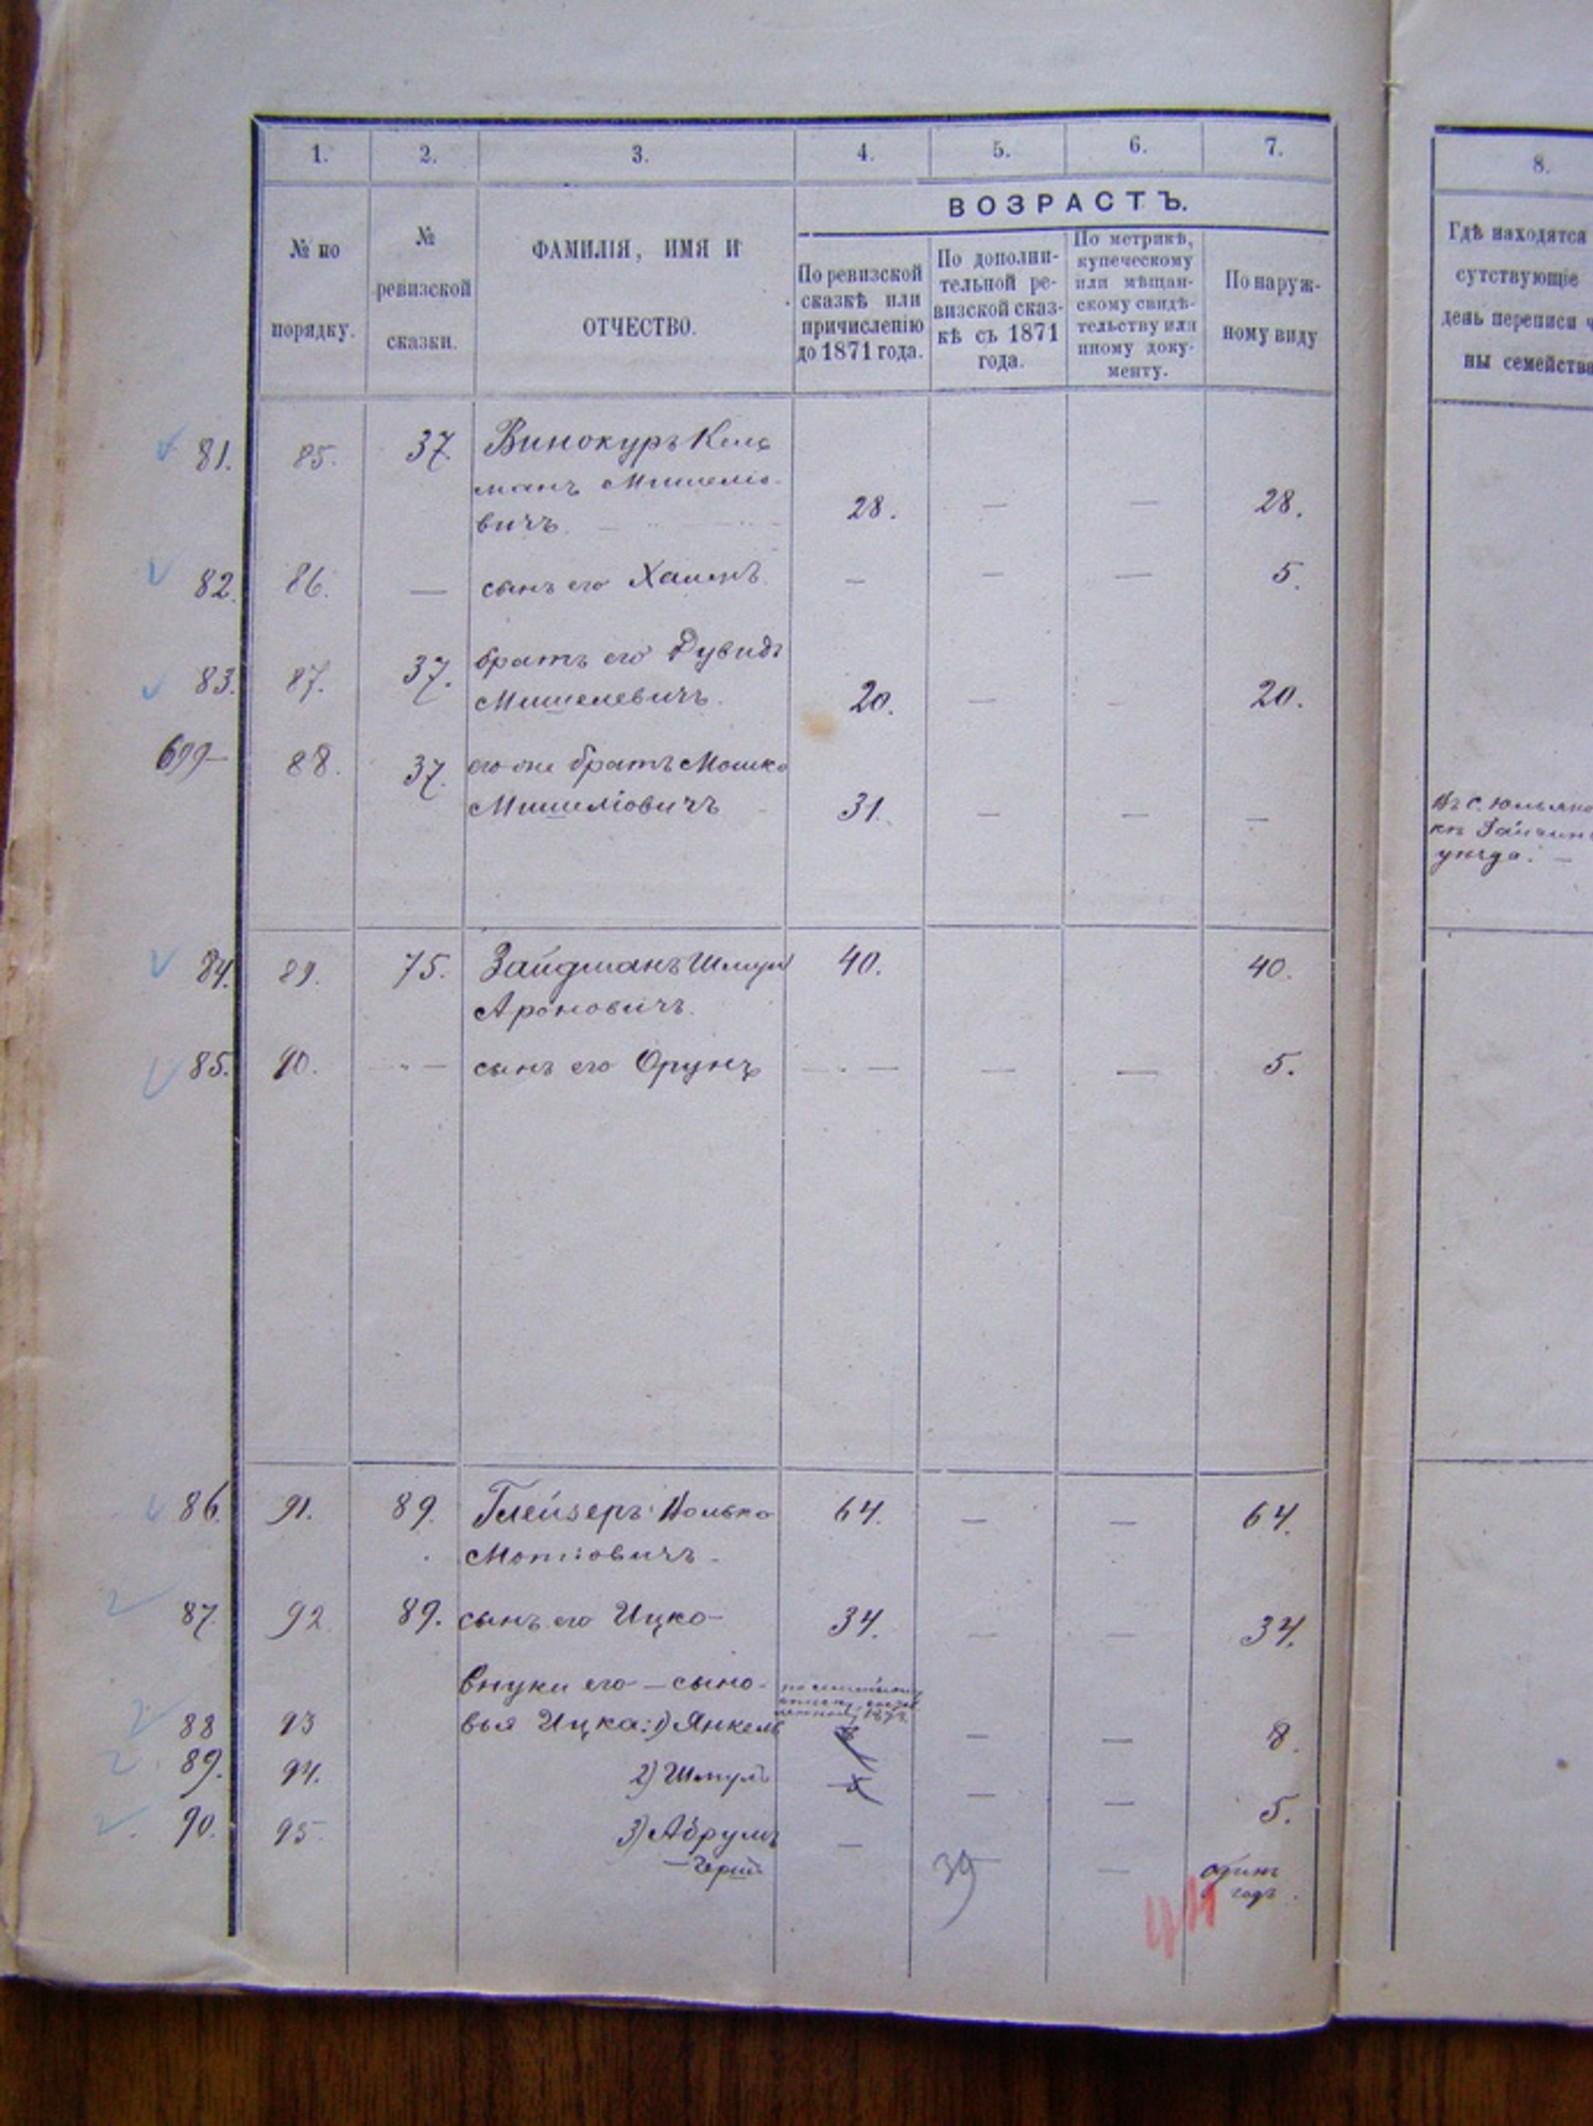 1. 2. 3. 4. 5. 6. 7.
ВОЗРАСТЪ.
№ по
порядку.
№
ревизской
сказки.
ФАМИЛІЯ, ИМЯ И
ОТЧЕСТВО.
По ревизской
сказкѣ или
причисленію
до 1871 года.
По дополни-
тельной ре-
визской сказ-
кѣ съ 1871
года.
По метрикѣ,
купеческому
или мѣщан-
скому свидѣ-
тельству или
иному доку-
менту.
По наруж-
ному виду
81. 85. 37. Винокуръ Кель
манъ Мишеліо-
вичъ. 28. — — 28.
82. 86. — сынъ его Хаимъ. — — — 5.
83. 87. 37. братъ его Дувидъ
Мишелевичъ. 20. — — 20.
699 88. 37. его же братъ Мошко
Мишеліовичъ 31. — — —
84. 89. 75. Зайдманъ Шмуль 40. 40.
Ароновичъ.
85. 90. — сынъ его Орунъ — — — 5.
86. 91. 89. Глейзеръ 64. — — 64.
Мотіовичъ
87. 92. 89. сынъ его Ицко 34. — — 34.
внуки его — сыно-
88 93 вья Ицка: 1) Янкель — — 8.
89. 94. 2) Шмуль — — 5.
90. 95. 3) Абрумъ — — одинъ
годъ.
39
8.
Гдѣ находятся
сутствующіе
день переписи ч
ны семейства
Въ с.
уѣзда. —